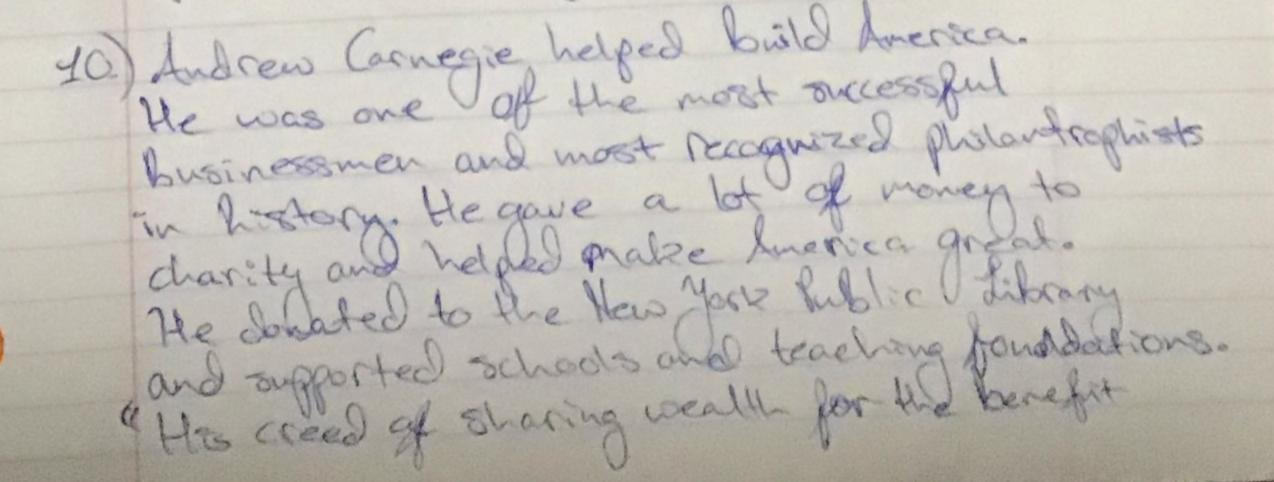 10.) Andrew Carnegie helped build America.
He was one of the most successful
businessmen and most recognized philantrophists
in history. He gave a lot of money to
charity and helped make America great.
He donated to the New York Public Library
and supported schools and teaching foundations.
"His creed of sharing wealth for the benefit